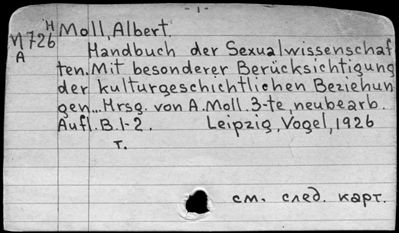 - 1 -
H
M726
A
Moll, Albert.
Handbuch der Sexualwissenschaf
ten. Mit besonderer Berücksichtigung
der kulturgeschichtlichen Beziehun
gen... Hrsg. von A. Moll. 3-te, neubearb.
Aufl. B. 1-2. Leipzig, Vogel, 1926
т.
см. след. карт.